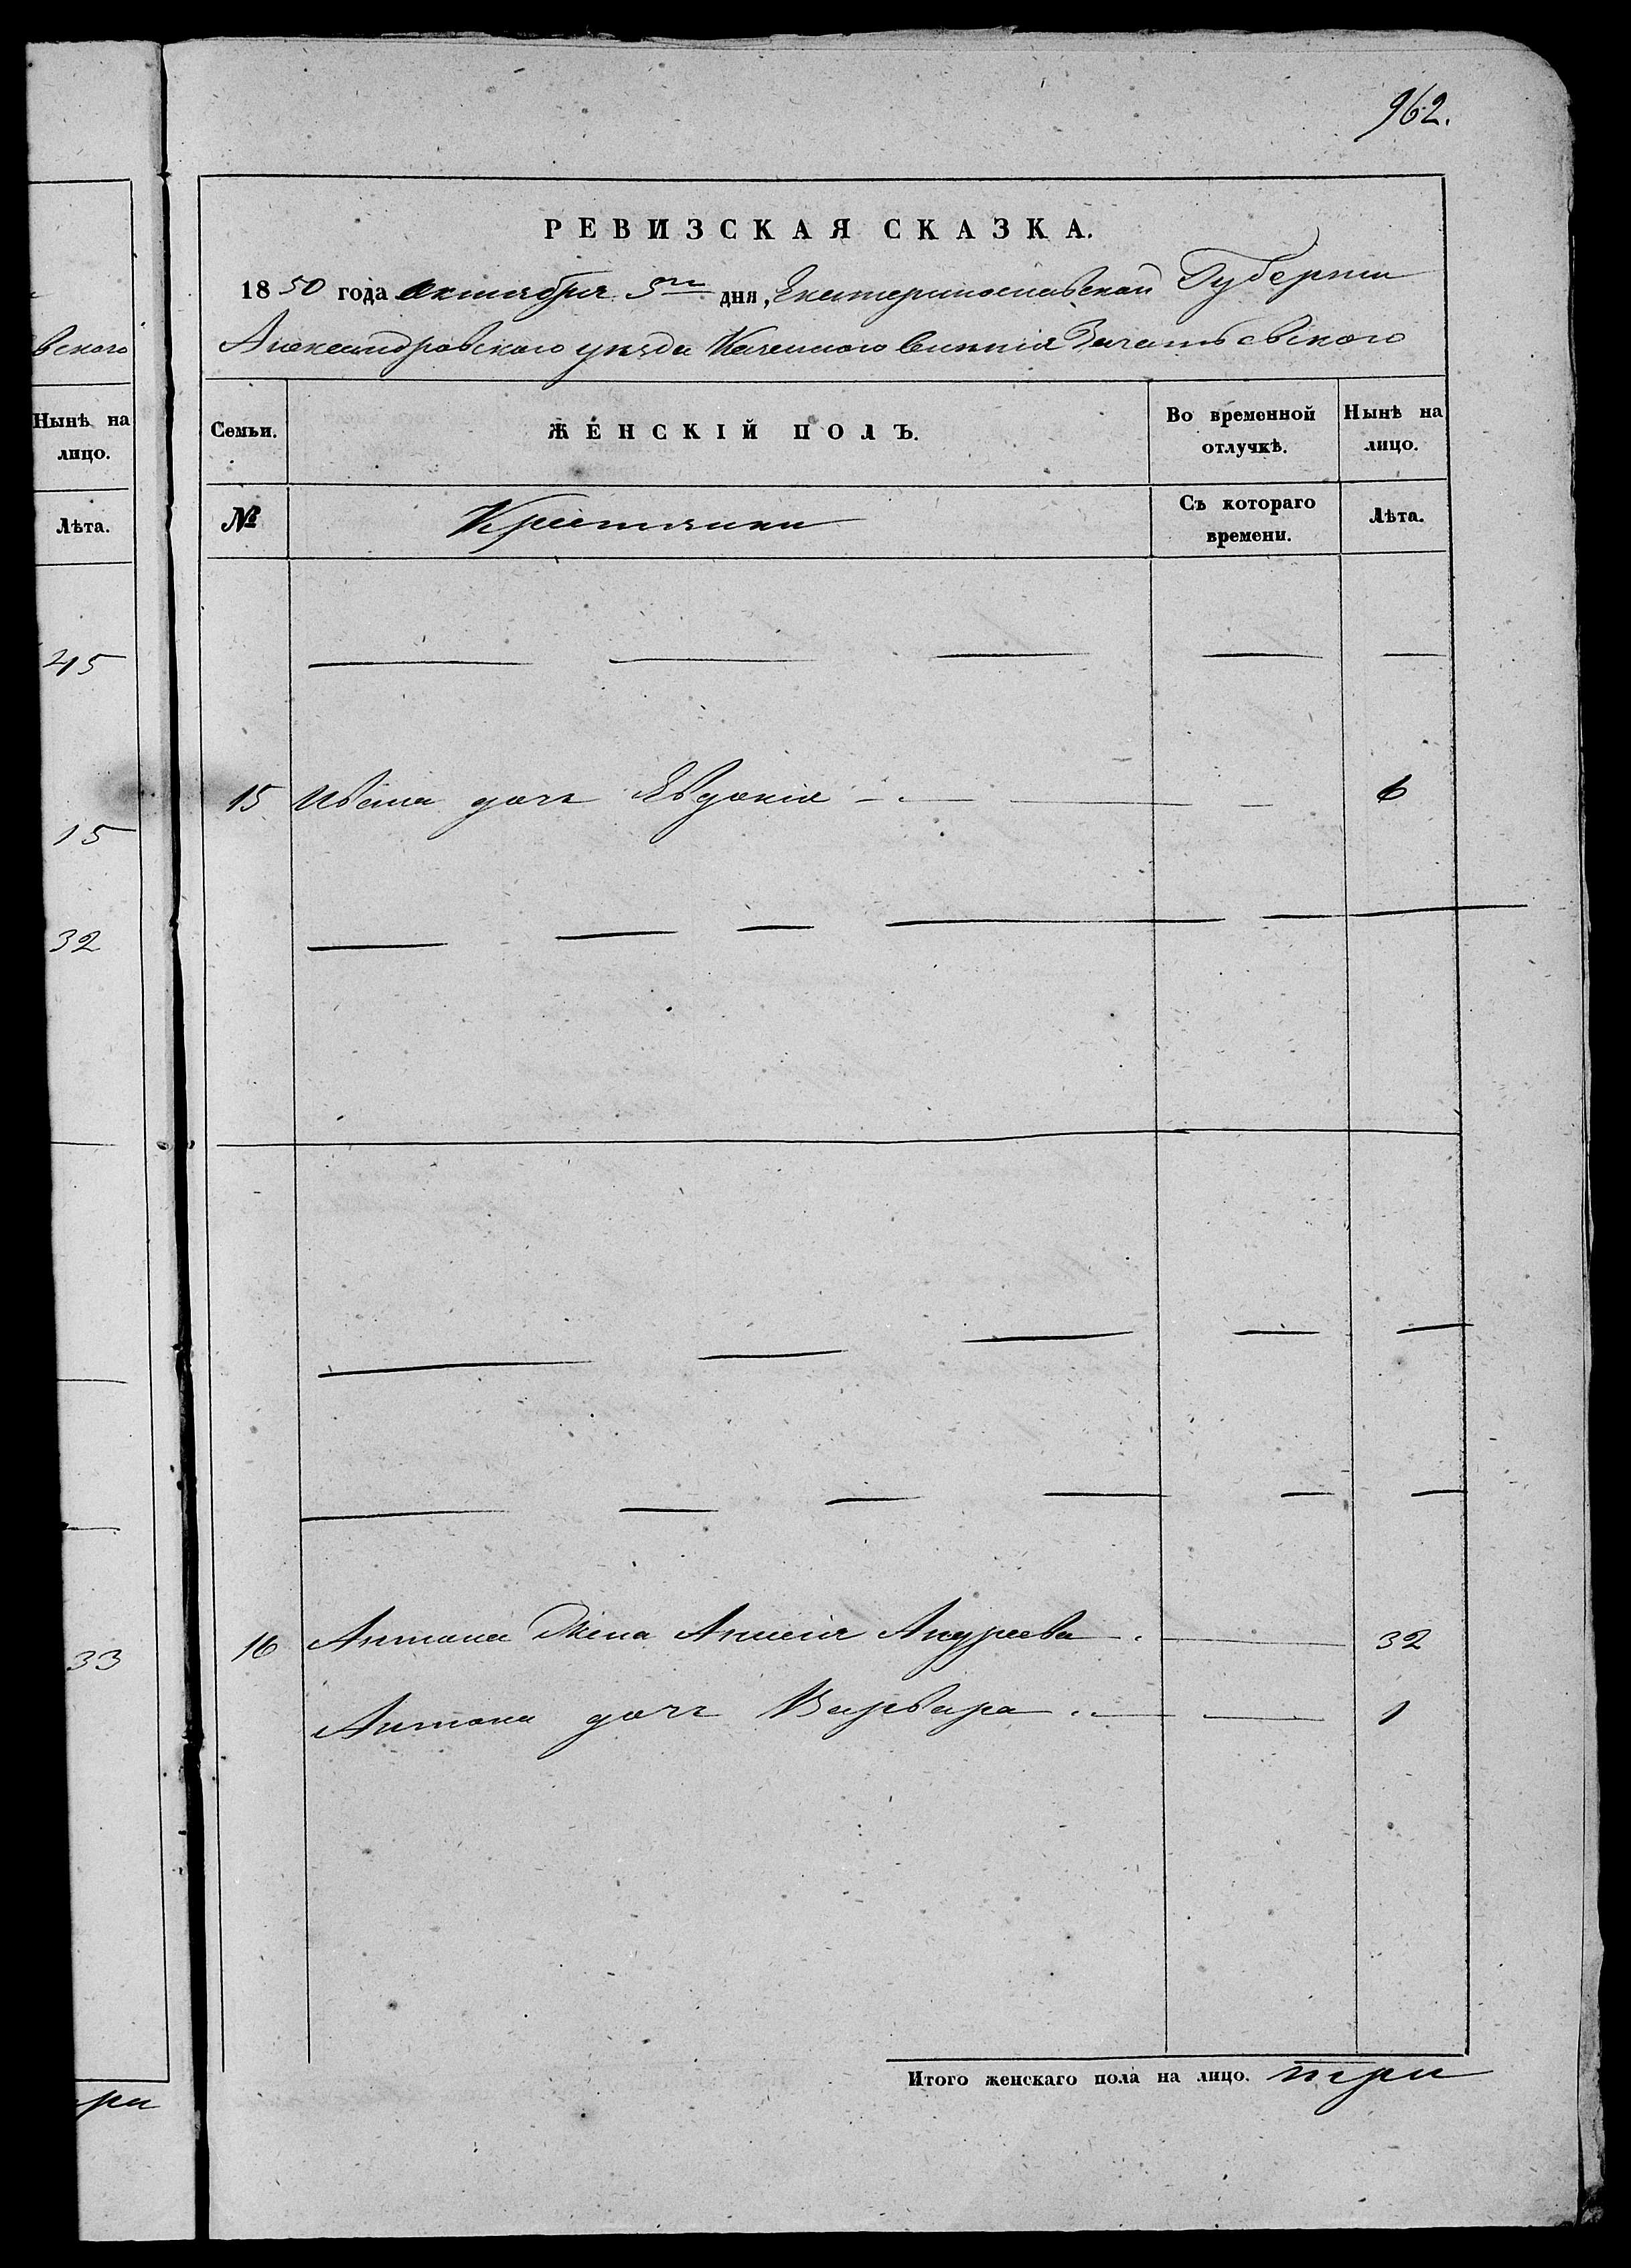 962.
РЕВИЗСКАЯ СКАЗКА.
1850 года октября 5го дня, Екатеринославской Губернии
Александровского уезда Казенного селения Зачатьевского
вского
Ныне на
лицо.
Семьи.
ЖЕНСКІЙ ПОЛЪ.
Во временной
отлучкѣ.
Нынѣ на
лицо.
Лѣта.
№
Крестьяни
Съ котораго
времени.
Лѣта.
45
15 Ивана дочь Евдокия 6
15
32
16 Антона Жена Андреева 32
33
Антона дочь Варвара 1
Итого женскаго пола на лицо. три
ри